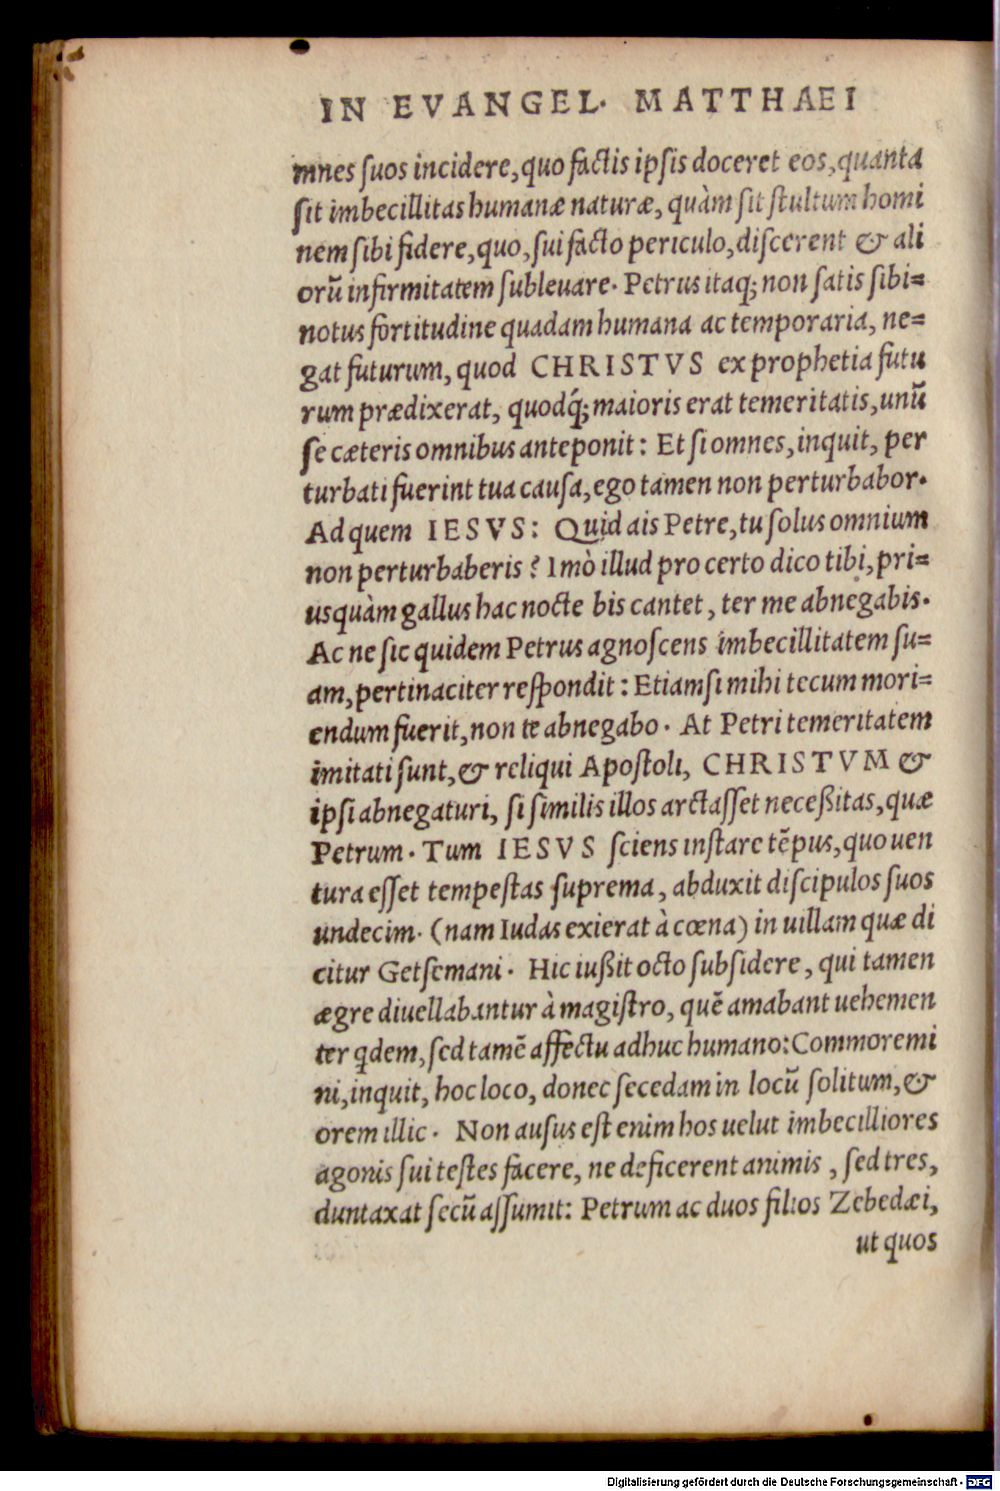 IN EVANGEL· MATTHAEI
mnes suos incidere, quo factis ipsis doceret eos, quanta
sit imbecillitas humanæ naturæ, quàm sit stultum homi
nem sibi fidere, quo, sui facto periculo, discerent & ali
orũ infirmitatem subleuare· Petrus itaq; non satis sibi=
notus fortitudine quadam humana ac temporaria, ne=
gat futurum, quod CHRISTVS ex prophetia futu
rum prædixerat, quodq́; maioris erat temeritatis, unũ
se cæteris omnibus anteponit: Et si omnes, inquit, per
turbati fuerint tua causa, ego tamen non perturbabor·
Ad quem IESVS: Quid ais Petre, tu solus omnium
non perturbaberis? Imò illud pro certo dico tibi, pri=
usquàm gallus hac nocte bis cantet, ter me abnegabis·
Ac ne sic quidem Petrus agnoscens imbecillitatem su=
am, pertinaciter respondit: Etiamsi mihi tecum mori=
endum fuerit, non te abnegabo· At Petri temeritatem
imitati sunt, & reliqui Apostoli, CHRISTVM &
ipsi abnegaturi, si similis illos arctasset neceßitas, quæ
Petrum· Tum IESVS sciens instare tẽpus, quo uen
tura esset tempestas suprema, abduxit discipulos suos
undecim· (nam Iudas exierat à cœna) in uillam quæ di
citur Getsemani· Hic iußit octo subsidere, qui tamen
ægre diuellabantur à magistro, quẽ amabant uehemen
ter qdem, sed tamẽ affectu adhuc humano: Commoremi
ni, inquit, hoc loco, donec secedam in locũ solitum, &
orem illic· Non ausus est enim hos uelut imbecilliores
agonis sui testes facere, ne deficerent animis, sed tres,
duntaxat secũ assumit: Petrum ac duos filios Zebedæi,
ut quos
Digitalisierung gefördert durch die Deutsche Forschungsgemeinschaft - DFG